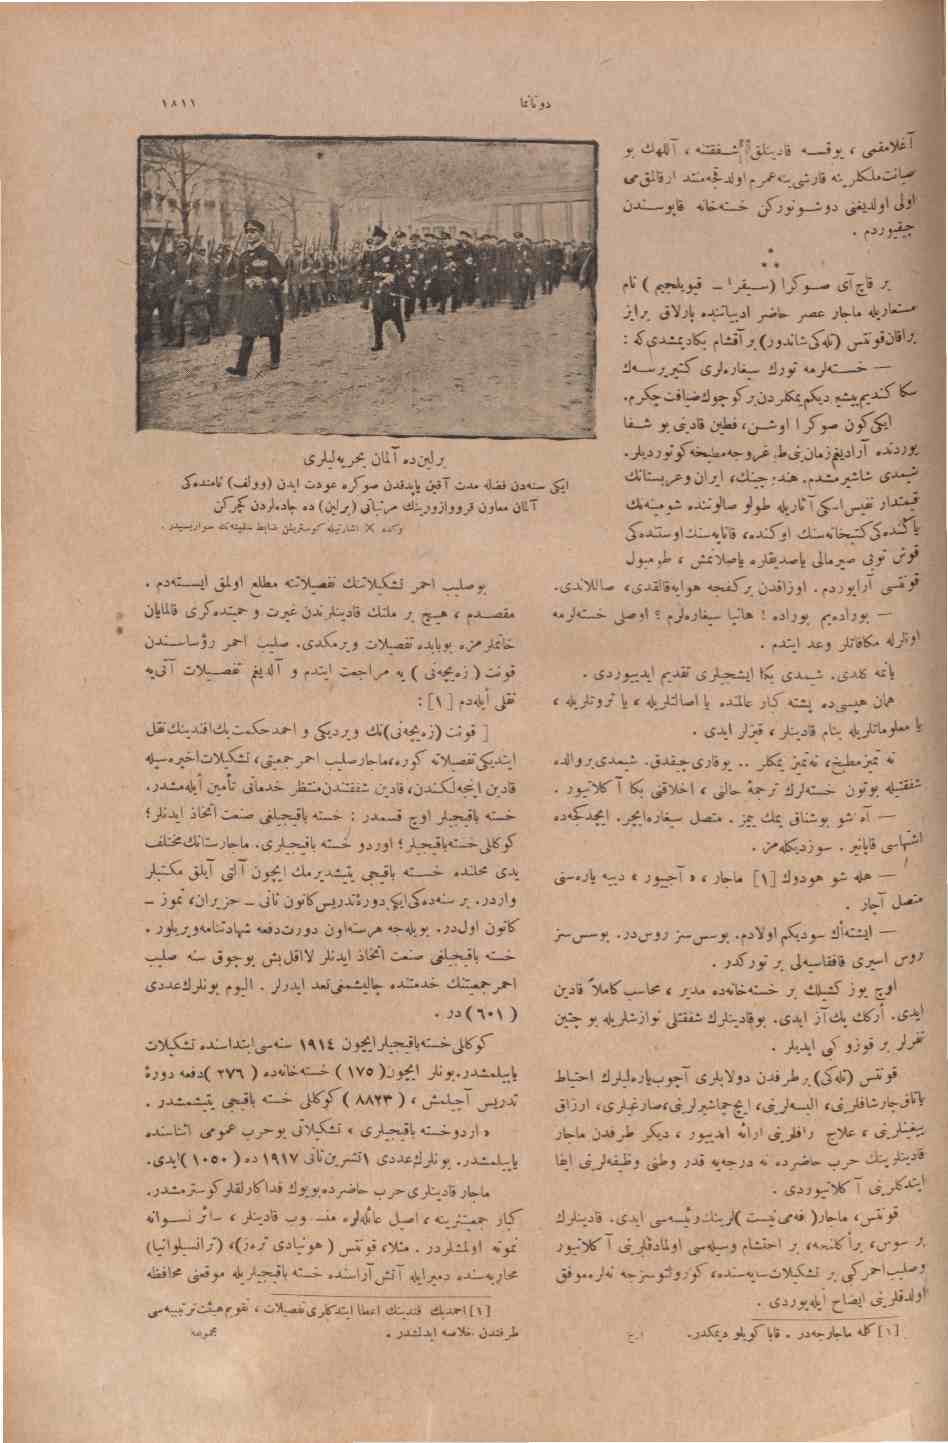 دوناما
١٨١١
آغلامقمى ، يوقسه قادينلق شفقتنه ، آللهك بو
صيانت ملكلرينه قارشى ينه عمرم اولدقجه منتدار قالمق مى
اولى اولديغنى دوشونوركن خسته‌خانه قاپوسندن
چيقيوردم .
***
بر قاچ آى صوكرا (سيقرا – قيويلجيم ) نام
مستعاريله ماجار عصر حاضر ادبياتنده پارلاق برايز
براقان قونتس (تله‌كى شاندور) بر آقشام بكا ديمشدى كه :
— خسته‌لرمه تورك سيغاره‌لرى كتيريرسه‌ك
سكا كنديم پيشيرديكم يمكلردن بر كوچوك ضيافت چكرم.
ايكى كون صوكرا اوشن، فطين قادنى بو شفا
يوردنده آراديغم زمان بنى طوغروجه مطبخه كوتورديلر.
شيمدى شاشيرمشدم. هند، چينك، ايران وعربستانك
قيمتدار نفيس اسكى آثاريله طولو صالوننده شومينه‌نك
ياكنده‌كى كتبخانه‌سنك اوكنده، قاناپه‌سنك اوستنده‌كى
قوش تويى صيرمالى ياصديقلره ياصلانمش ، طومبول
قونتسى آرايوردم . اوزاقدن بر كفچه هوايه قالقدى، صاللاندى.
— بوراده‌يم بوراده ! هانيا سيغاره‌لرم ؟ اوصلى خسته‌لرمه
اونلرله مكافاتلر وعد ايتدم .
يانمه كلدى. شيمدى بكا ايشجيلرى تقديم ايدييوردى .
همان هپسى ده پشته كبار عالمنده يا اصالتلريله ، يا ثروتلريله ،
يا معلوماتلريله بنام قادينلر ، قيزلر ايدى .
نه تميز مطبخ، نه تميز يمكلر .. يوقارى چيقدق. شيمدى بر والده
شفقتيله بوتون خسته‌لرك ترجمهٔ حالنى ، اخلاقنى بكا آكلاتيور .
— آه شو بوشناق يمك ييمز . متصل سيغاره ايچر. ايچدكجه ده
اشتهاسى قاپانير . سوز ديكله‌مز .
— هله شو هودوك [١] ماجار ، « آجييور » دييه ياره‌سنى
متصل آچار .
— ايشته اك سوديكم اولادم. بوسس سز روس در. بوسس سز
روس اسيرى قافقاسيه‌لى بر توركدر .
اوچ يوز كشيلك بر خسته‌خانه‌ده مدير ، محاسب كاملاً قادين
ايدى. اركك پك آز ايدى. بوقادينلرك شفقتلى نوازشلريله بو چتين
نفرلر بر قوزو كبى ايديلر .
قونتس (تله‌كى) بر طرفدن دولابلرى آچوب ياره‌ليلرك احتياط
ياتاق چارشافلرينى، البسه‌لرينى، ايچ چماشيرلرينى، صارغيلرى، ارزاق
ييغينلرينى ، علاج رافلرينى ارائه ايدييور ، ديكر طرفدن ماجار
قادينلرينك حرب حاضرده نه درجه‌يه قدر وطنى وظيفه‌لرينى ايفا
ايتدكلرينى آكلاتيوردى .
قونتس، ماجار( فه‌مى نيست )لرينك رئيسه‌سى ايدى. قادينلرك
بر سوس، بر اكلنجه، بر احتشام وسيله‌سى اولمادقلرينى آكلاتيور
وصليب احمركبى بر تشكيلات سايه‌سنده، كورولتوسزجه نه‌لره موفق
اولدقلرينى ايضاح ايله‌يوردى .
[١] كله ماجارجه‌در . قابا كويلو ديمكدر.
ا.ح
برلين‌ده آلمان بحريه‌ليلرى
ايكى سنه‌دن فضله مدت آقين ياپدقدن صوكره عودت ايدن (وولف) نامنده‌كى
آلمان معاون قرووازورينك مرتباتى (برلين) ده جاده‌لردن كچركن
وكده × اشارتيله كوستريلن ضابط سفينه‌نك سواريسيدر .
بوصليب احمر تشكيلاتنك تفصيلاتنه مطلع اولمق ايسته‌دم .
مقصدم ، هيچ بر ملتك قادينلرندن غيرت و حميتده كرى قالمايان
خانملرمزه بوبابده تفصيلات ويرمكدى. صليب احمر رؤساسندن
قونت ( زه‌چه‌نى ) يه مراجعت ايتدم و آلديغم تفصيلات آتى‌يه
نقلى ايله‌دم [١] :
[ قونت (زه‌يچه‌نى)نك ويرديكى و احمد حكمت بك افندينك نقل
ايتديكى تفصيلاته كوره، ماجار صليب احمر جمعيتى، تشكيلات اخيره‌سيله
قادين اينجه‌لكندن، قادين شفقتندن منتظر خدماتى تأمين ايله‌مشدر.
خسته باقيجيلر اوچ قسمدر : خسته باقيجيلغى صنعت اتخاذ ايدنلر؛
كوكللى خسته باقيجيلر ؛ اوردو خسته باقيجيلرى. ماجارستانك مختلف
يدى محلنده خسته باقيجى يتيشديرمك ايچون آلتى آيلق مكتبلر
واردر. بر سنه‌ده‌كى ايكى دورهٔ تدريس كانون ثانى – حزيران، تموز –
كانون اول‌در. بويله‌جه هر سنه اون دورت دفعه شهادتنامه ويريلور .
خسته باقيجيلغى صنعت اتخاذ ايدنلر لااقل بش بوچوق سنه صليب
احمر جمعيتنك خدمتنده چاليشمغى تعهد ايدرلر . اليوم بونلرك عددى
( ٦٠١ ) در .
كوكللى خسته باقيجيلر ايچون ١٩١٤ سنه‌سى ابتداسنده تشكيلات
ياپيلمشدر. بونلر ايچون( ١٧٥ ) خسته‌خانه‌ده ( ٢٧٦ )دفعه دورهٔ
تدريس آچيلمش ، ( ٨٨٢٣ ) كوكللى خسته باقيجى يتيشمشدر .
« اردو خسته باقيجيلرى » تشكيلاتى بو حرب عمومى اثناسنده
ياپيلمشدر. بونلرك عددى ١ تشرين ثانى ١٩١٧ ده ( ١٠٥٠ )ايدى.
ماجار قادينلرى حرب حاضرده بويوك فداكارلقلر كوسترمشدر.
كبار جمعيتلرينه ، اصيل عائله‌لره منسوب قادينلر ، سائر نسوانه
نمونه اولمشلردر . مثلا، قونتس ( هونيادى تره‌ز)، (ترانسيلوانيا)
محاربه‌سنده دميرايله آتش آراسنده خسته باقيجيلريله موقعنى محافظه
[١] احمدبك افندينك اعطا ايتدكلرى تفصيلات ، تقويم هيئت ترتيبيه‌سى
طرفندن خلاصه ايدلمشدر .
مجموعه